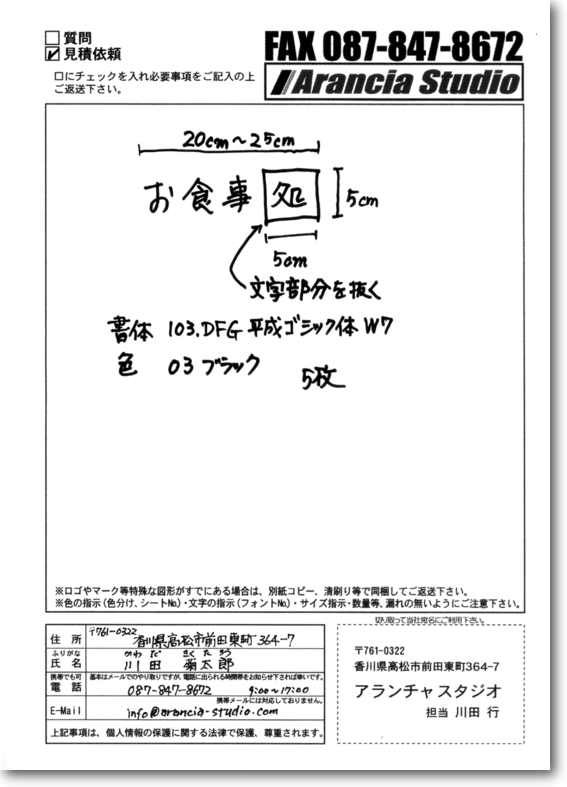 □質問
☑見積依頼
□にチェックを入れ必要事項をご記入の上
ご返送下さい。
FAX 087-847-8672
Arancia Studio
20cm～25cm
お食事処
5cm
5cm
文字部分を抜く
書体 103.DFG 平成ゴシック体 W7
色 03 ブラック
5枚
※ロゴやマーク等特殊な図形がすでにある場合は、別紙コピー、清刷り等で同梱してご返送下さい。
※色の指示(色分け、シートNo.)・文字の指示(フォントNo.)・サイズ指示・数量等、漏れの無いようにご注意下さい。
切り取って当社宛名にご利用下さい。
住所 〒761-0322
香川県高松市前田東町364-7
ふりがな かわ だ きくたろう
氏名 川田 菊太郎
携帯でも可 基本はメールでのやり取りですが、電話に出られる時間帯をお知らせ下されば幸いです。
電話 087-847-8672 9:00～17:00
携帯メールには対応しておりません。
E-Mail info@arancia-studio.com
上記事項は、個人情報の保護に関する法律で保護、尊重されます。
〒761-0322
香川県高松市前田東町364-7
アランチャスタジオ
担当 川田 行